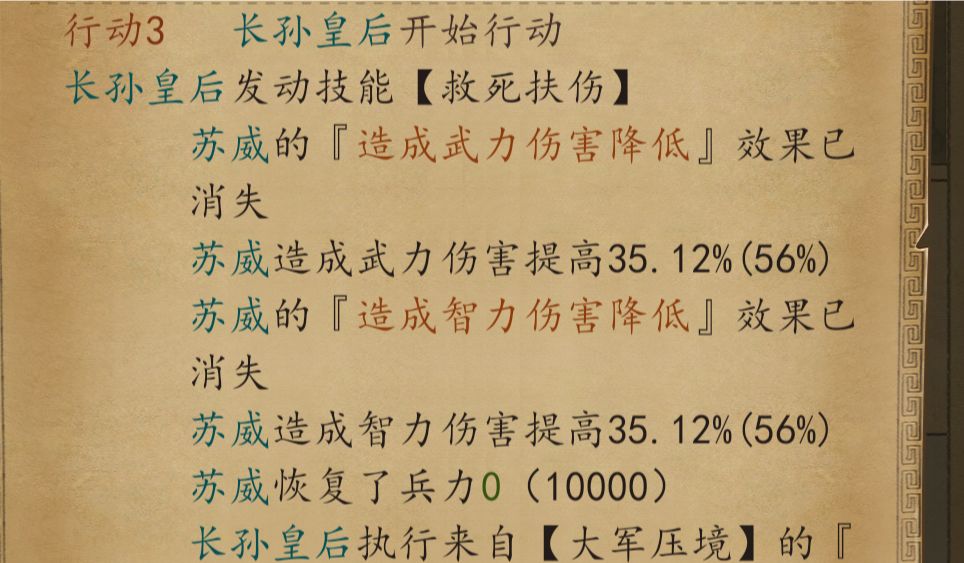 行动3 长孙皇后开始行动
长孙皇后发动技能【救死扶伤】
苏威的『造成武力伤害降低』效果已
消失
苏威造成武力伤害提高35.12%(56%)
苏威的『造成智力伤害降低』效果已
消失
苏威造成智力伤害提高35.12%(56%)
苏威恢复了兵力0（10000）
长孙皇后执行来自【大军压境】的『